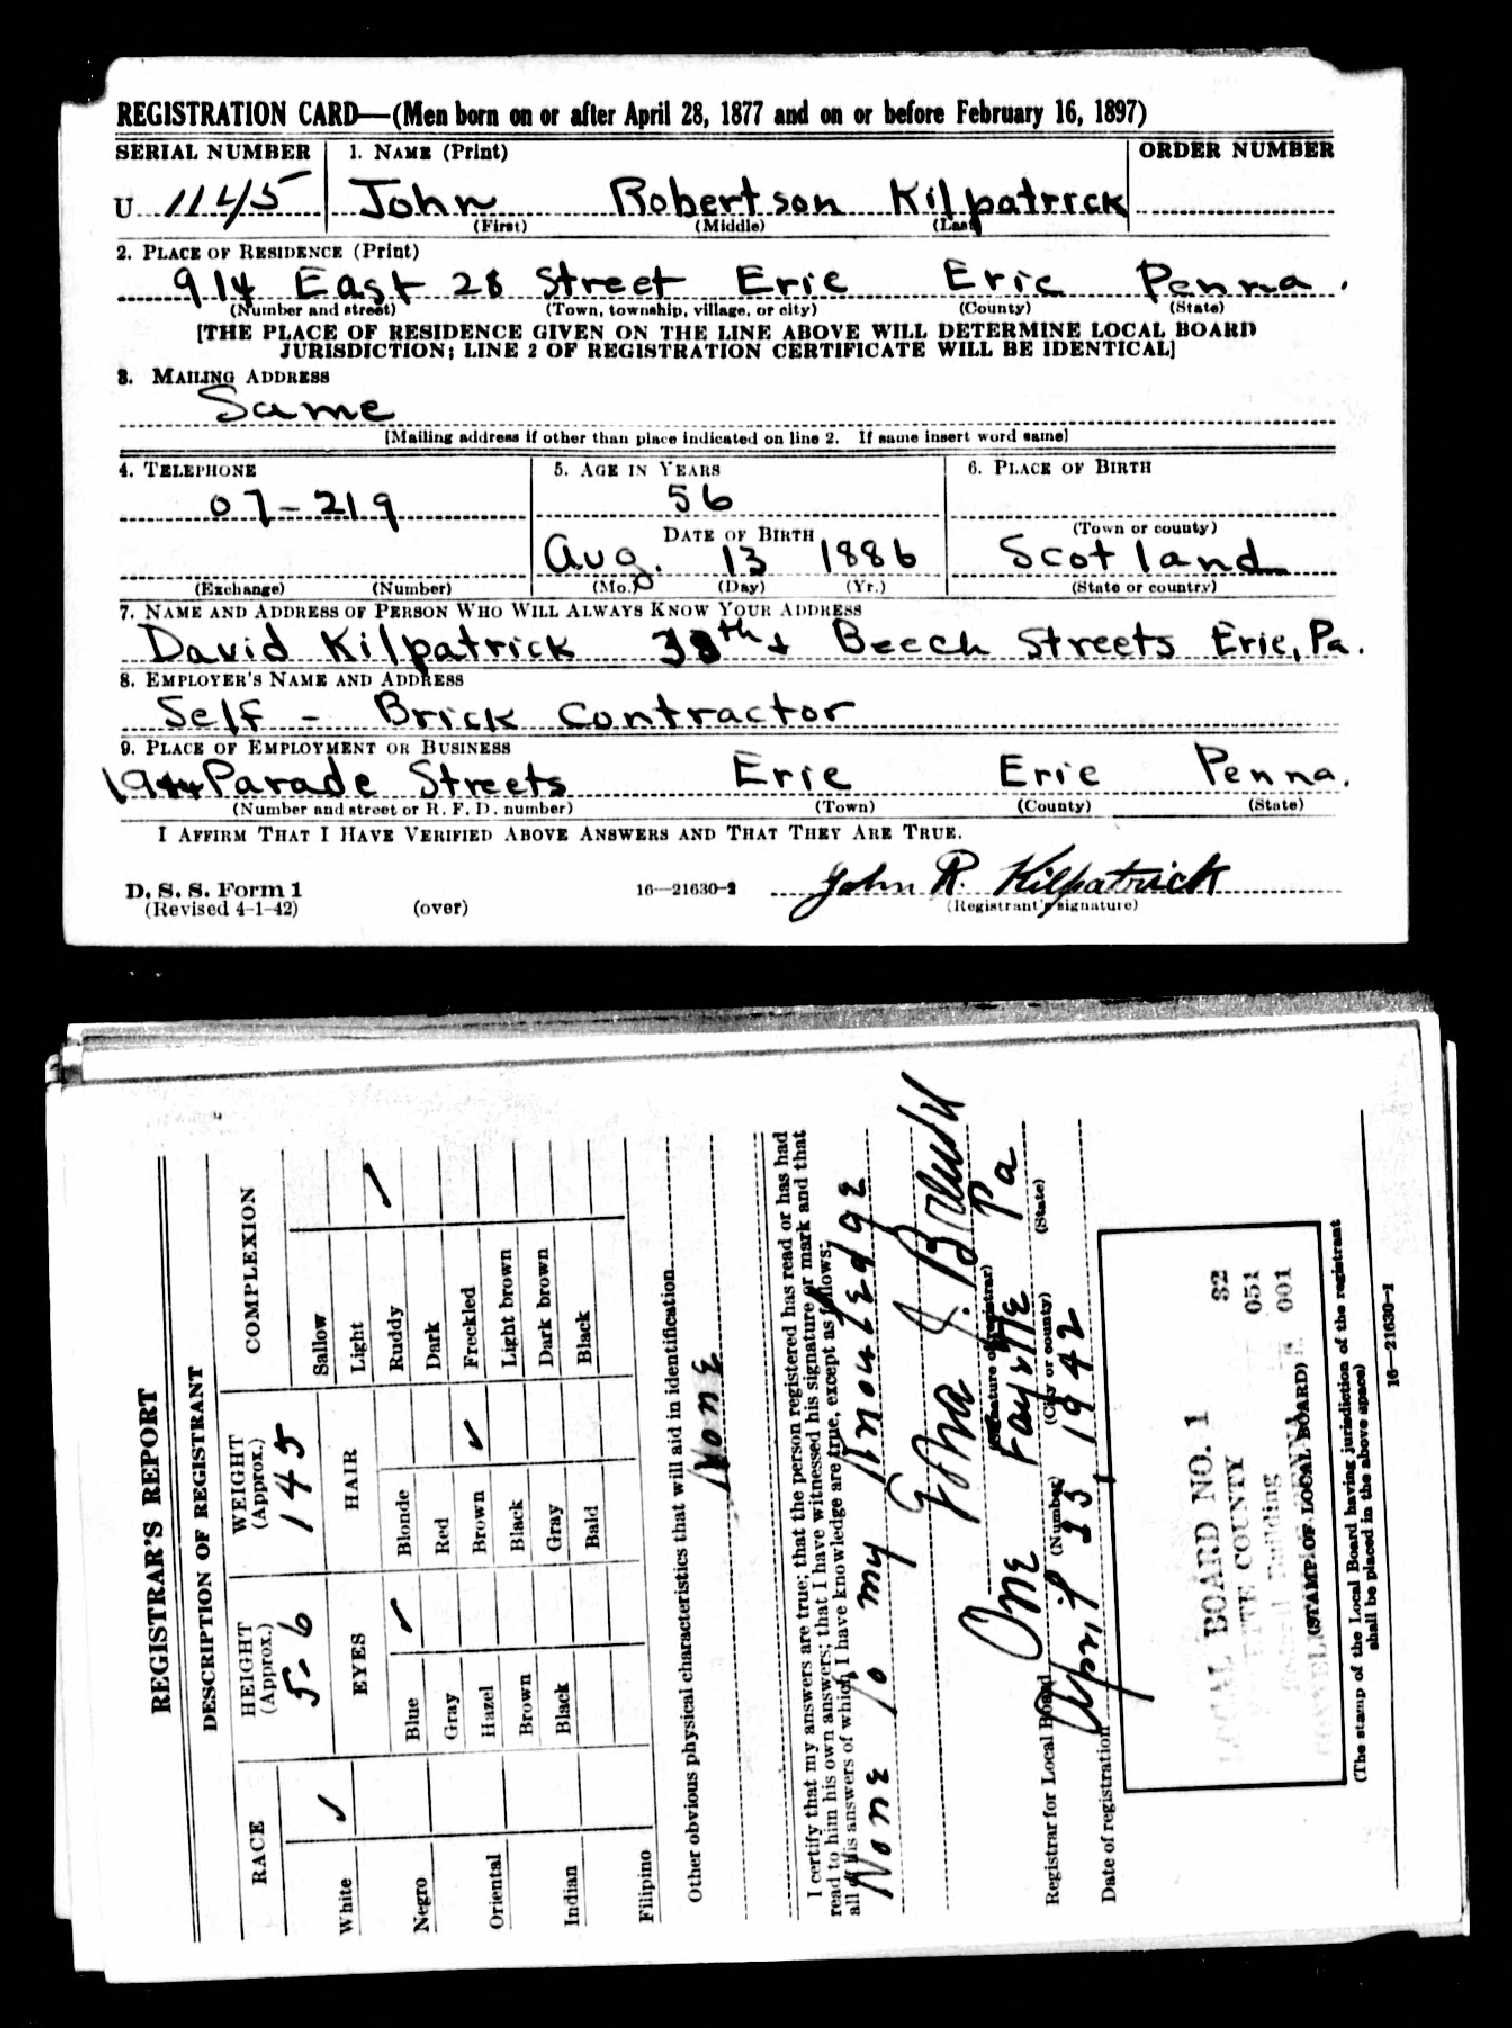 REGISTRATION CARD—(Men born on or after April 28, 1877 and on or before February 16, 1897)
SERIAL NUMBER 1. NAME (Print) ORDER NUMBER
U 1145 John Robertson Kilpatrick
(First) (Middle) (Last)
2. PLACE OF RESIDENCE (Print)
914 East 28 Street Erie Erie Penna.
(Number and street) (Town, township, village, or city) (County) (State)
[THE PLACE OF RESIDENCE GIVEN ON THE LINE ABOVE WILL DETERMINE LOCAL BOARD
JURISDICTION; LINE 2 OF REGISTRATION CERTIFICATE WILL BE IDENTICAL]
3. MAILING ADDRESS
Same
[Mailing address if other than place indicated on line 2. If same insert word same]
4. TELEPHONE 5. AGE IN YEARS 6. PLACE OF BIRTH
07-219 56
DATE OF BIRTH (Town or county)
Aug. 13 1886 Scotland
(Exchange) (Number) (Mo.) (Day) (Yr.) (State or country)
7. NAME AND ADDRESS OF PERSON WHO WILL ALWAYS KNOW YOUR ADDRESS
David Kilpatrick 38th + Beech Streets Erie, Pa.
8. EMPLOYER'S NAME AND ADDRESS
Self - Brick Contractor
9. PLACE OF EMPLOYMENT OR BUSINESS
Parade Streets Erie Erie Penna.
(Number and street or R. F. D. number) (Town) (County) (State)
I AFFIRM THAT I HAVE VERIFIED ABOVE ANSWERS AND THAT THEY ARE TRUE.
John R. Kilpatrick
D. S. S. Form 1 16—21630-2
(Revised 4-1-42) (over) (Registrant's signature)
REGISTRAR'S REPORT
DESCRIPTION OF REGISTRANT
RACE HEIGHT (Approx.) WEIGHT (Approx.) COMPLEXION
5-6 145
EYES HAIR
White ✓ Blue ✓ Blonde Sallow
Negro Gray Red Light
Oriental Hazel Brown ✓ Ruddy ✓
Indian Brown Black Dark
Filipino Black Gray Freckled
Bald Light brown
Dark brown
Black
Other obvious physical characteristics that will aid in identification
None
I certify that my answers are true; that the person registered has read or has had
read to him his own answers; that I have witnessed his signature or mark and that
all of his answers of which I have knowledge are true, except as follows:
None To my Knowledge
John J.
(Signature of registrar)
Registrar for Local Board One Fayette Pa
(Number) (City or county) (State)
Date of registration April 25, 1942
LOCAL BOARD NO. 1 32
COUNTY 051
Building 001
(STAMP OF LOCAL BOARD)
(The stamp of the Local Board having jurisdiction of the registrant
shall be placed in the above space)
16—21630-1